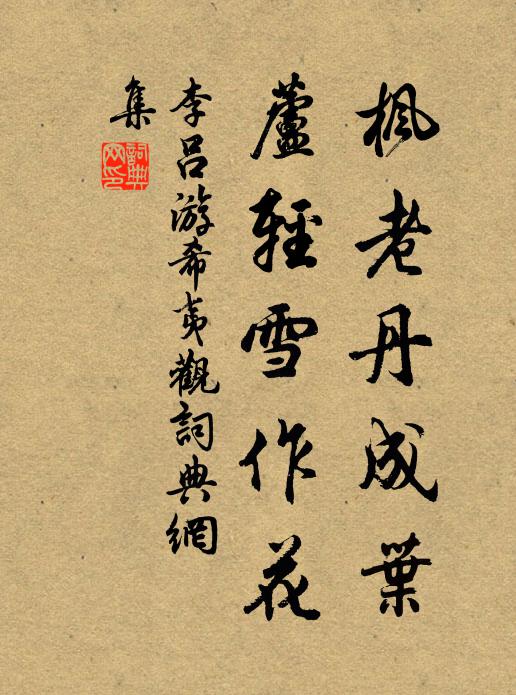 楓老丹成葉
蘆輕雪作花
李呂游希夷觀詞典網
集
詞典網印